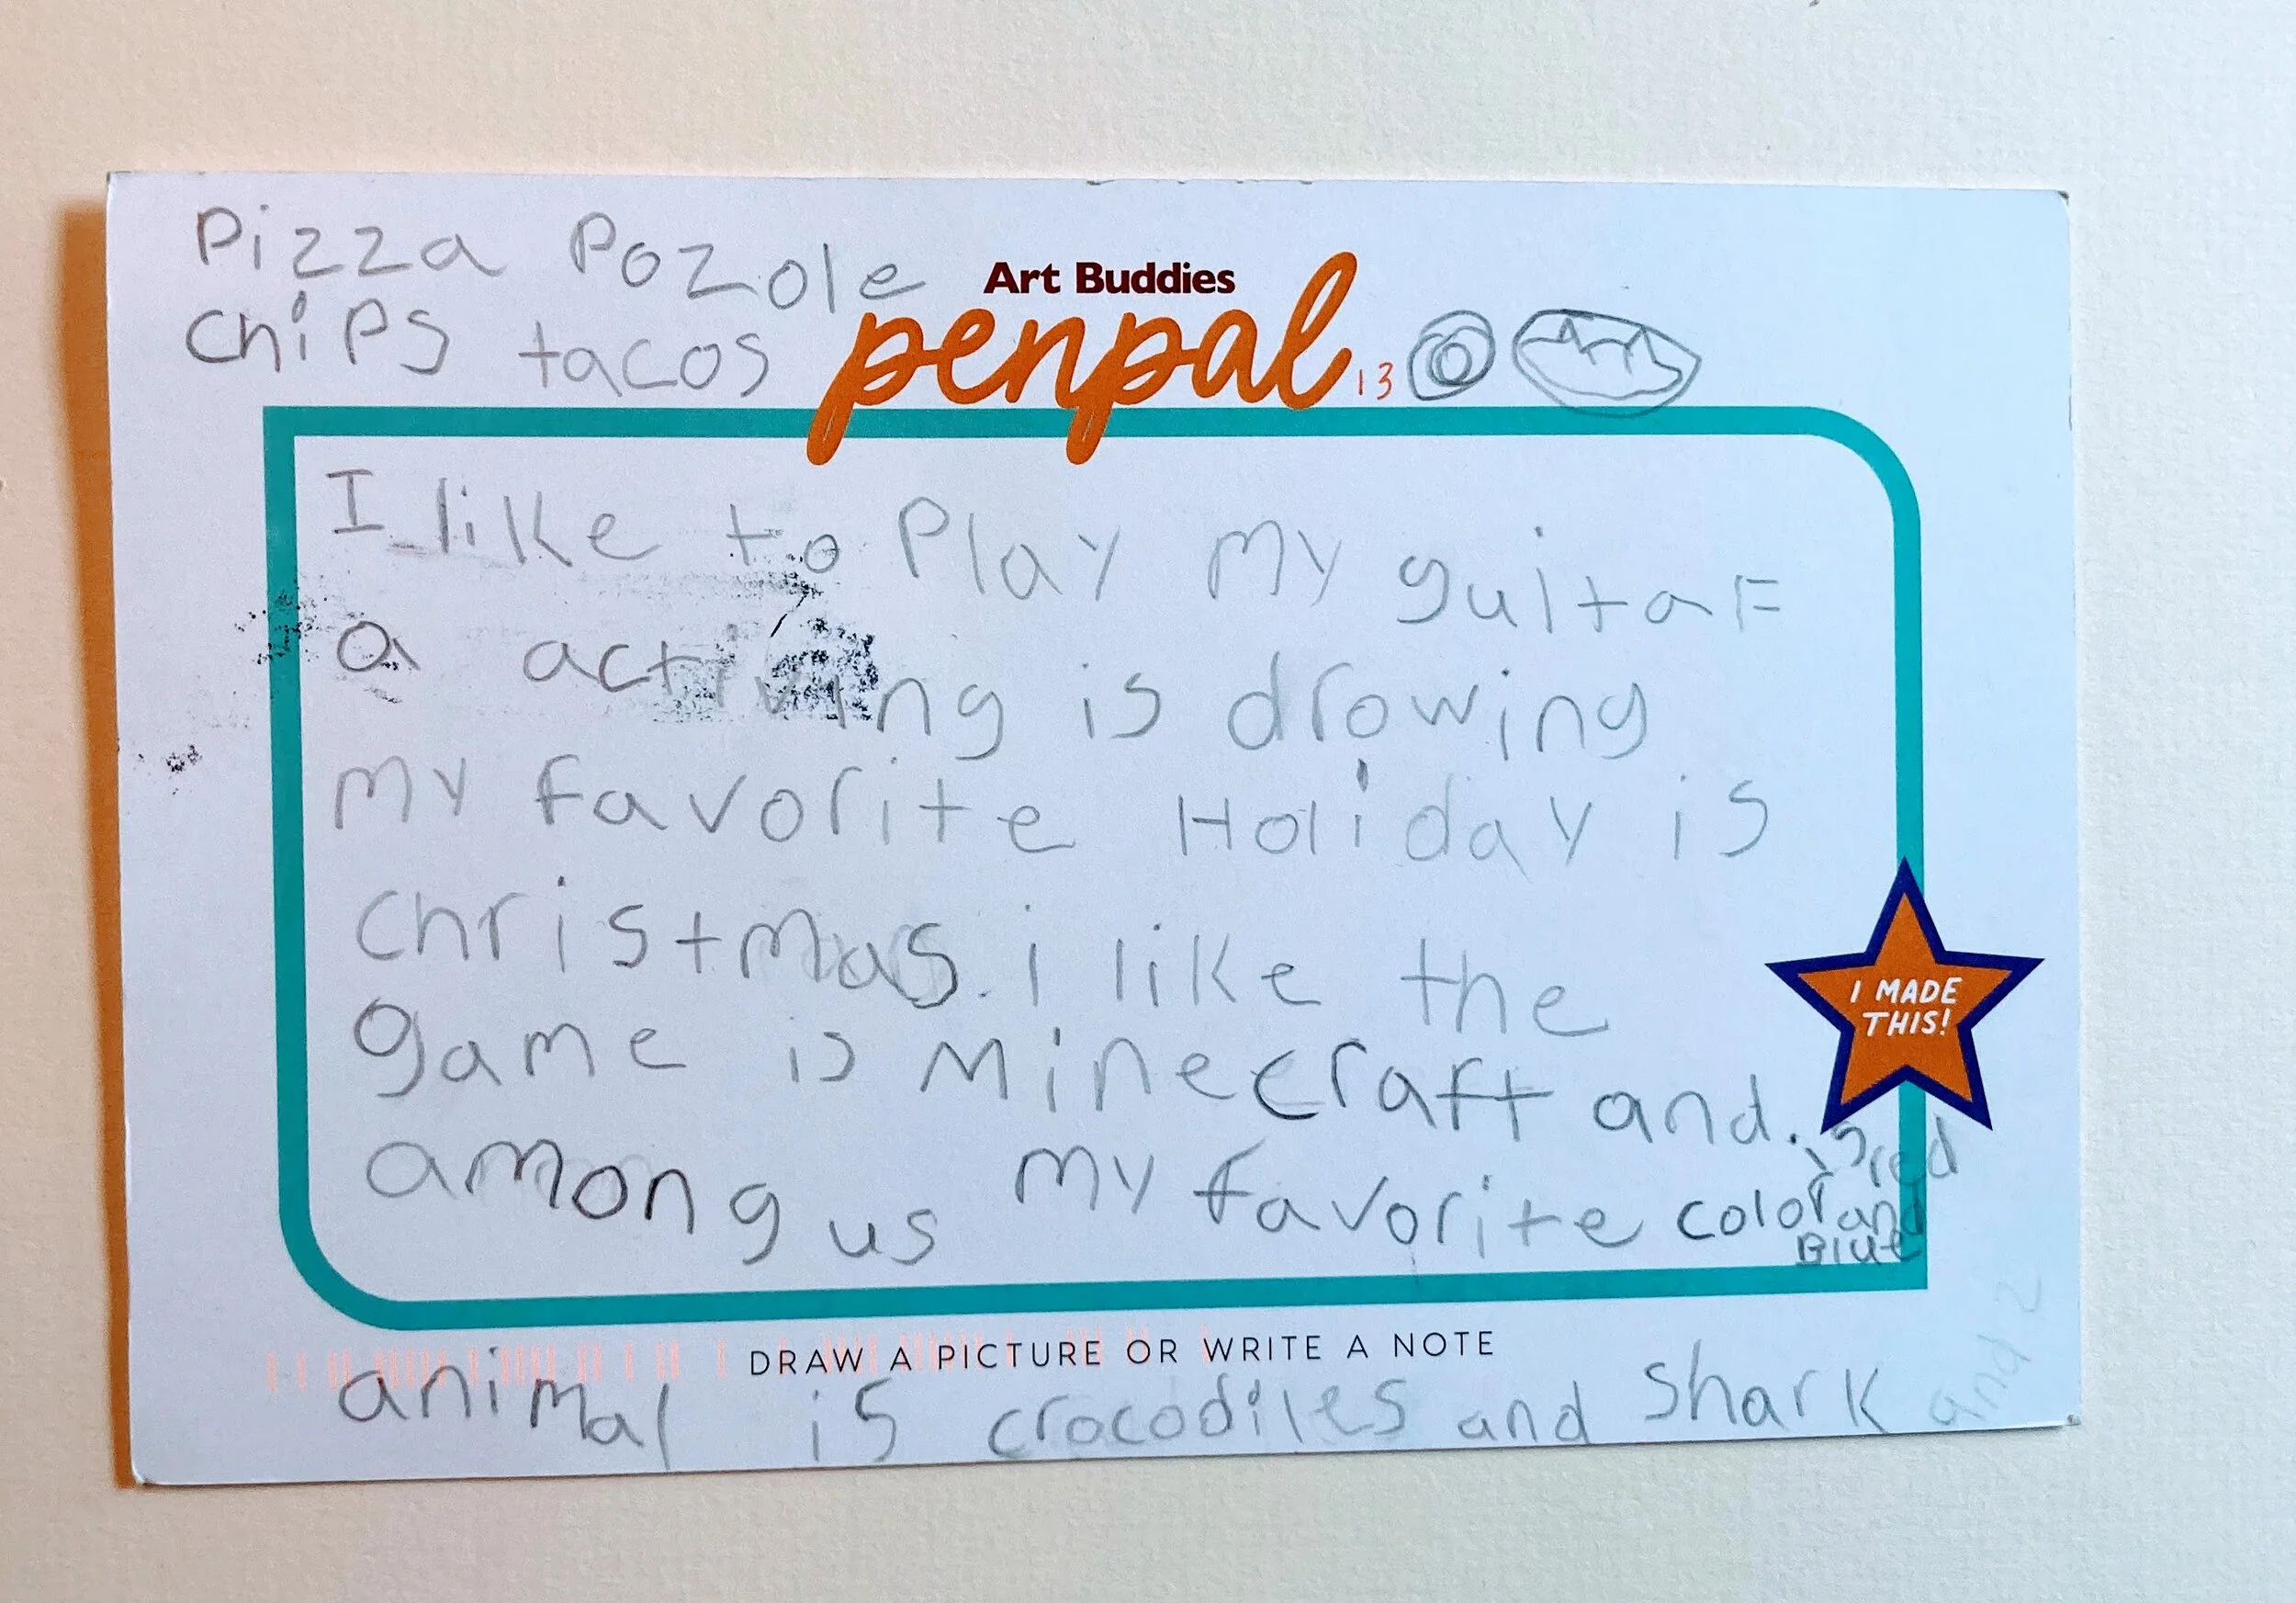 Pizza Pozole
chips tacos
Art Buddies
penpal
13
I like to Play my guitar
a activing is drowing
my favorite Holiday is
christmas. i like the
game is Minecraft and.
among us my favorite color
is red
and
Blue
I MADE
THIS!
DRAW A PICTURE OR WRITE A NOTE
animal is crocodiles and shark
and 2